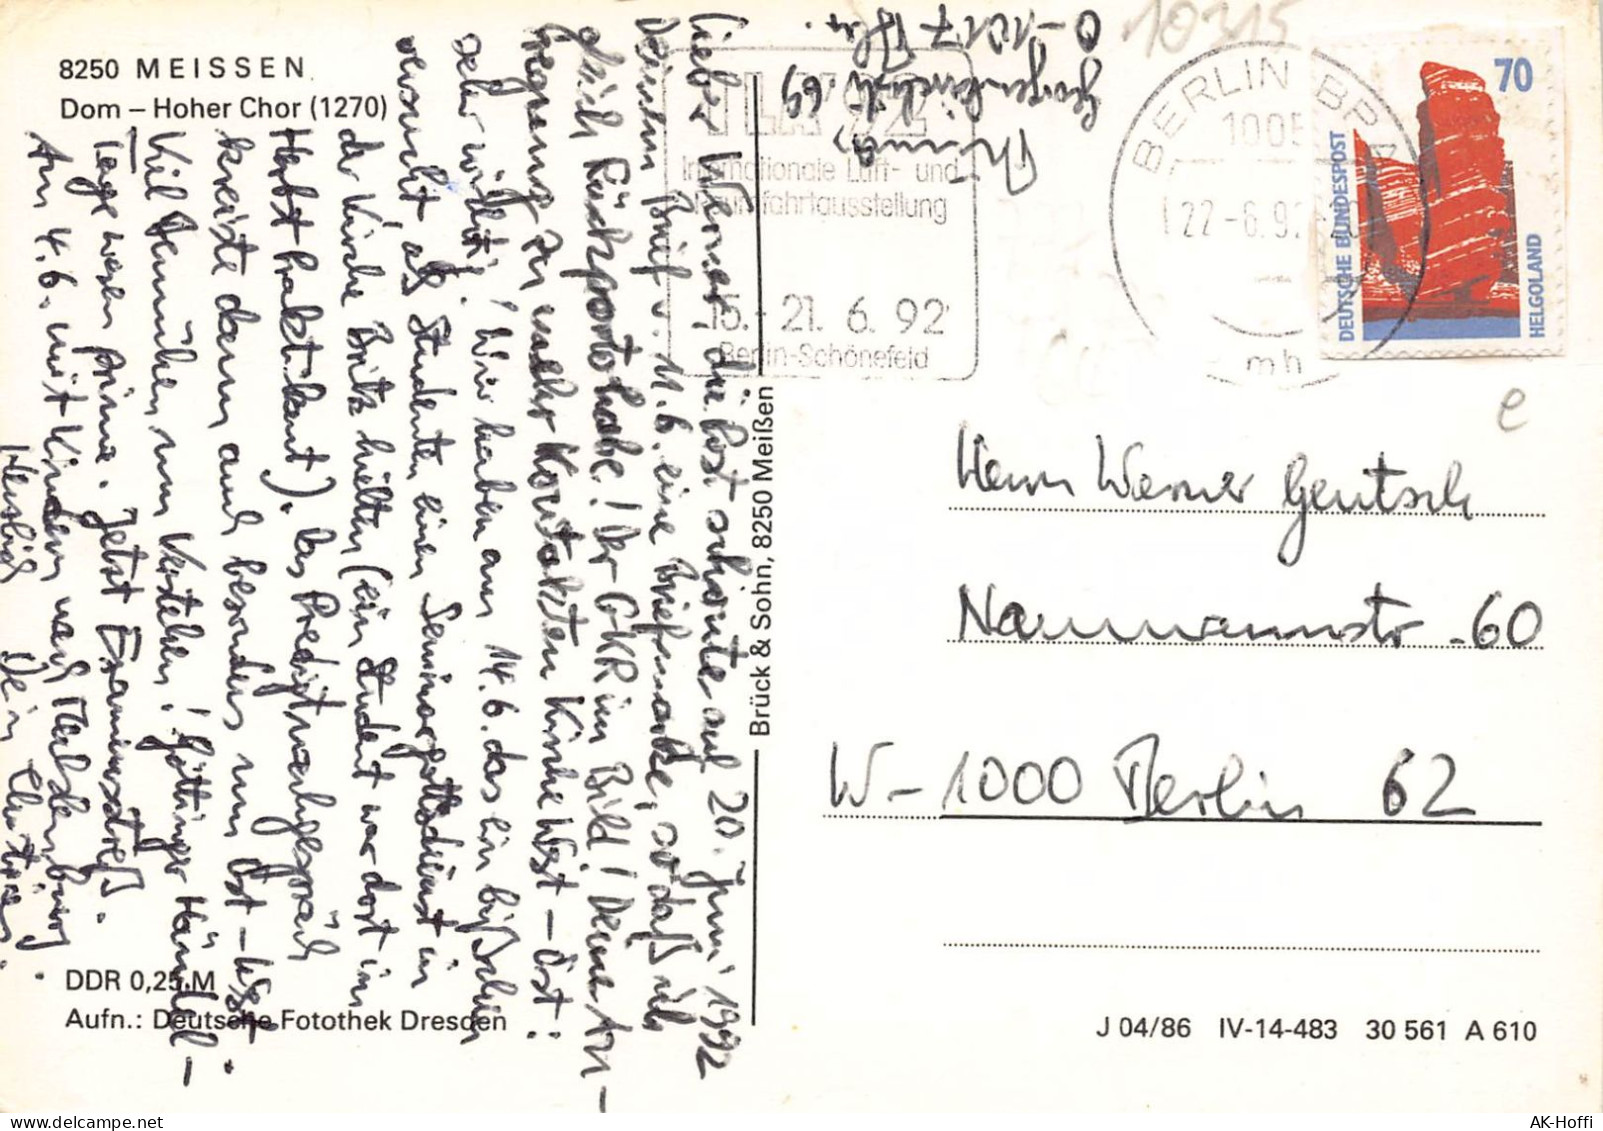 8250 MEISSEN
Dom – Hoher Chor (1270)
20. Juni 1992
Lieber Werner, die Post schonte auf
Deinem Brief v. 11.6. eine Briefmarke, sodaß ich
gleich Rückporto habe! Der GKR im Bild! Deine An-
regung zu mehr Kontakten Kirche West – Ost:
sehr wichtig! Wir haben am 14.6. das ein bißchen
versucht, als Studenten einen Seminargottesdienst in
der Kirche Britz hielten (ein Student war dort im
Herbst Praktikant). Das Predigtnachgespräch
kreiste dann auch besonders um Ost – West.
Viel Bemühen um Verstehen! Göttinger Händel-
Tage waren prima. Jetzt Examensstreß.
Am 4.6. mit Kindern nach
Herzlich Dein
Georgenkirchstr. 69
O-1017 Bln.
Brück & Sohn, 8250 Meißen
DDR 0,25 M
Aufn.: Deutsche Fotothek Dresden
10315
Internationale Luft- und
Raumfahrtausstellung
15.- 21. 6. 92
Berlin-Schönefeld
BERLIN BPA
1005
22-6.92
mh
70
DEUTSCHE BUNDESPOST
HELGOLAND
e
Herrn Werner Gentsch
Naumannstr. 60
W-1000 Berlin 62
J 04/86 IV-14-483 30 561 A 610
AK-Hoffi